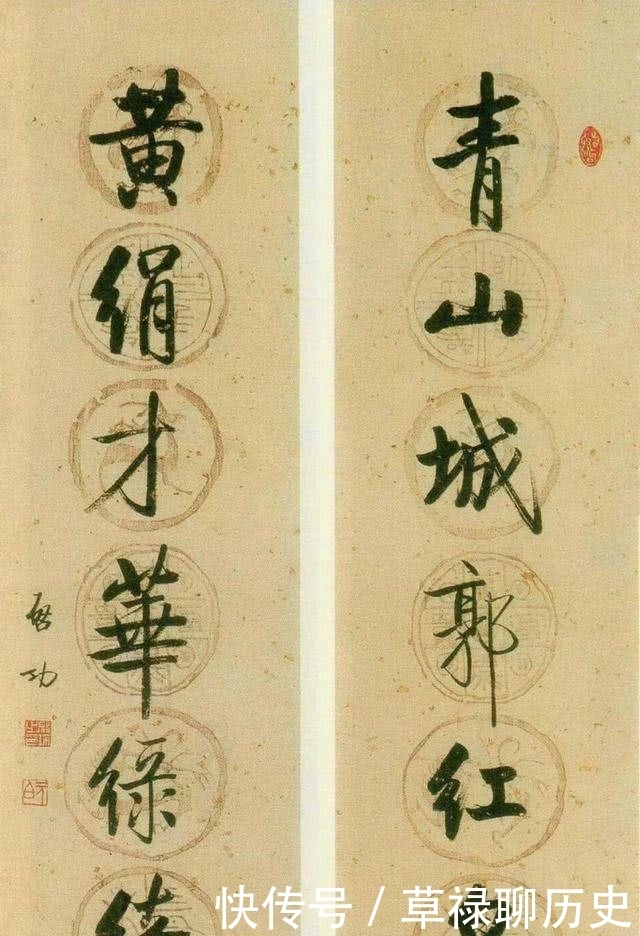 青山城郭紅
黃絹才華緑
启功
快传号 / 草禄聊历史